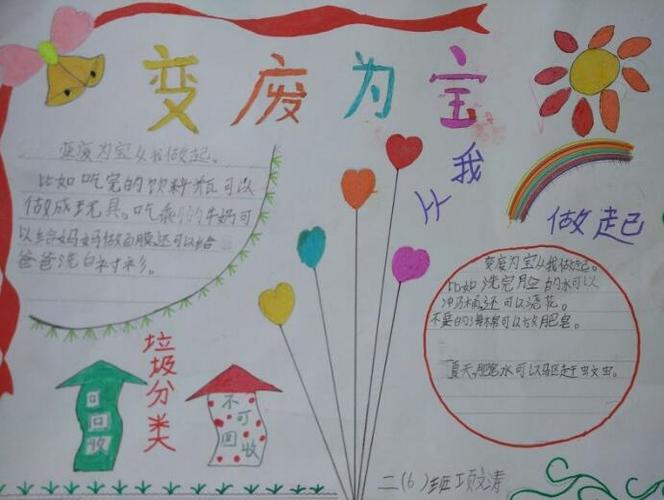 变废为宝
从我
做起
变废为宝从我做起。
比如吃完的饮料瓶可以
做成玩具。吃剩的牛奶可
以给妈妈做面膜还可以给
爸爸洗白衬衫。
变废为宝从我做起。
比如洗完脸的水可以
冲马桶还可以浇花。
不要的海棉可以放肥皂。
夏天,肥皂水可以驱赶蚊虫。
垃圾分类
可回收
不可回收
二(6)班项文清